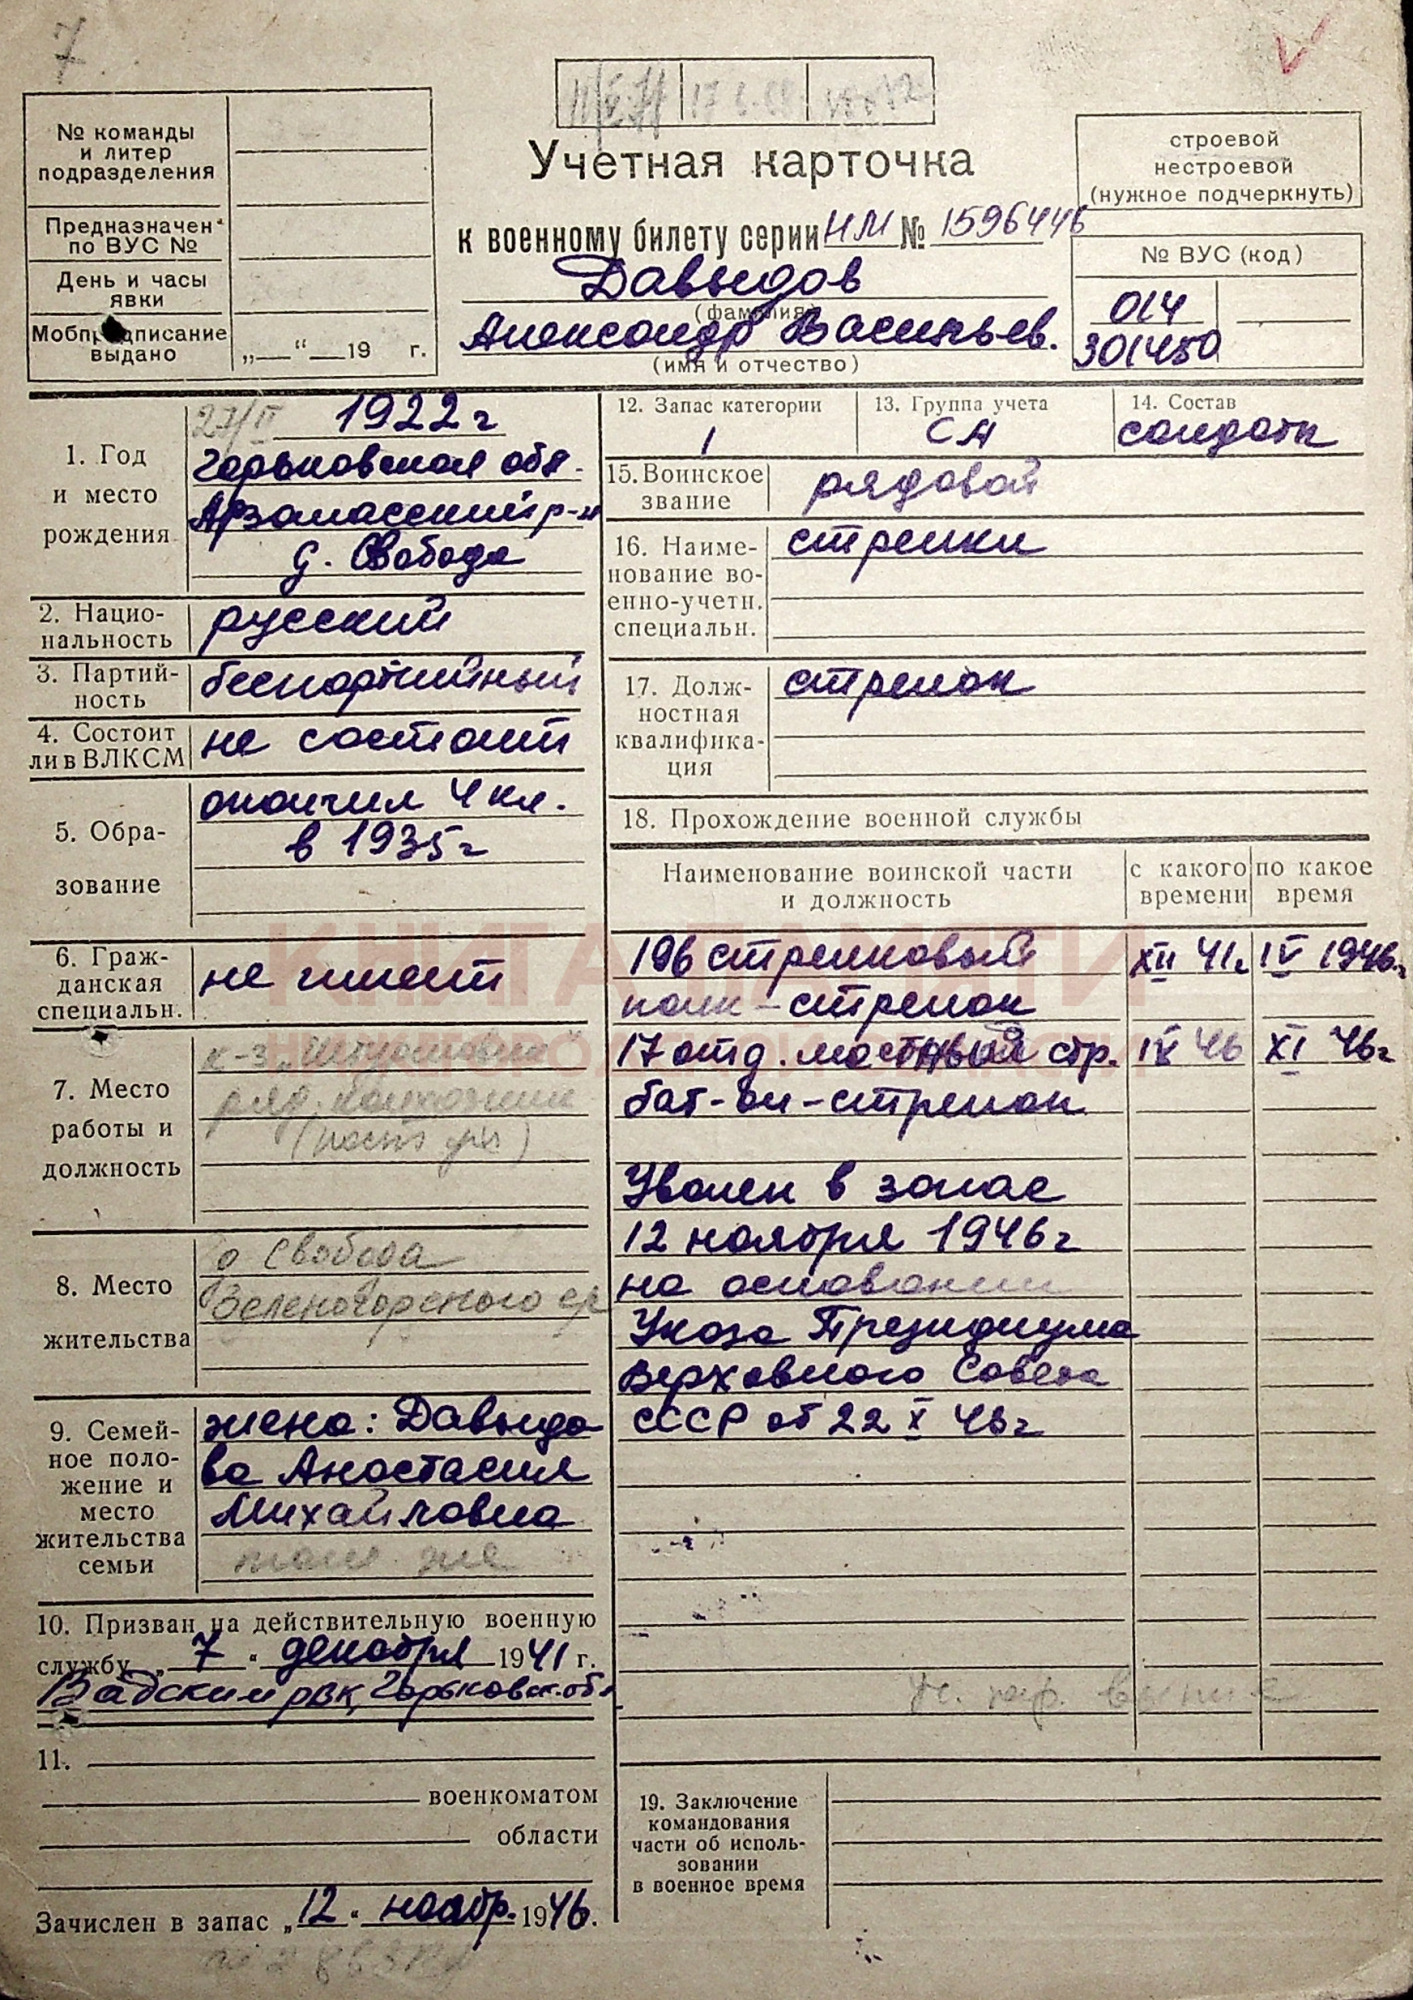 7
№ команды
и литер
подразделения
Предназначен
по ВУС №
День и часы
явки
Мобпредписание
выдано
„ “ 19 г.
Учетная карточка
к военному билету серии НМ № 1596446
Давыдов
(фамилия)
Александр Васильев.
(имя и отчество)
строевой
нестроевой
(нужное подчеркнуть)
№ ВУС (код)
014
301450
1. Год
и место
рождения
27/II 1922 г
Горьковская обл.
Арзамасский р-н
д. Свобода
2. Нацио-
нальность
русский
3. Партий-
ность
беспартийный
4. Состоит
ли в ВЛКСМ
не состоит
5. Обра-
зование
окончил 4 кл.
в 1935 г
6. Граж-
данская
специальн.
не имеет
7. Место
работы и
должность
к-з
ряд. колхозник
8. Место
жительства
д Свобода
Зеленогорского с/с
9. Семей-
ное поло-
жение и
место
жительства
семьи
жена: Давыдо
ва Анастасия
Михайловна
там же
10. Призван на действительную военную
службу „7“ декабря 1941 г.
Вадским РВК Горьковск. обл
11.
военкоматом
области
Зачислен в запас „12“ ноябр. 1946.
12. Запас категории
1
13. Группа учета
СА
14. Состав
солдаты
15. Воинское
звание
рядовой
16. Наиме-
нование во-
енно-учетн.
специальн.
стрелки
17. Долж-
ностная
квалифика-
ция
стрелок
18. Прохождение военной службы
Наименование воинской части
и должность
с какого
времени
по какое
время
196 стрелковый XII 41г IV 1946г
полк - стрелок
17 отд. местный стр. IV 46 XI 46г
бат-он - стрелок
Уволен в запас
12 ноября 1946 г
на основании
Указа Президиума
Верховного Совета
СССР от 22 X 46 г
19. Заключение
командования
части об исполь-
зовании
в военное время
КНИГА ПАМЯТИ
НИЖЕГОРОДСКОЙ ОБЛАСТИ